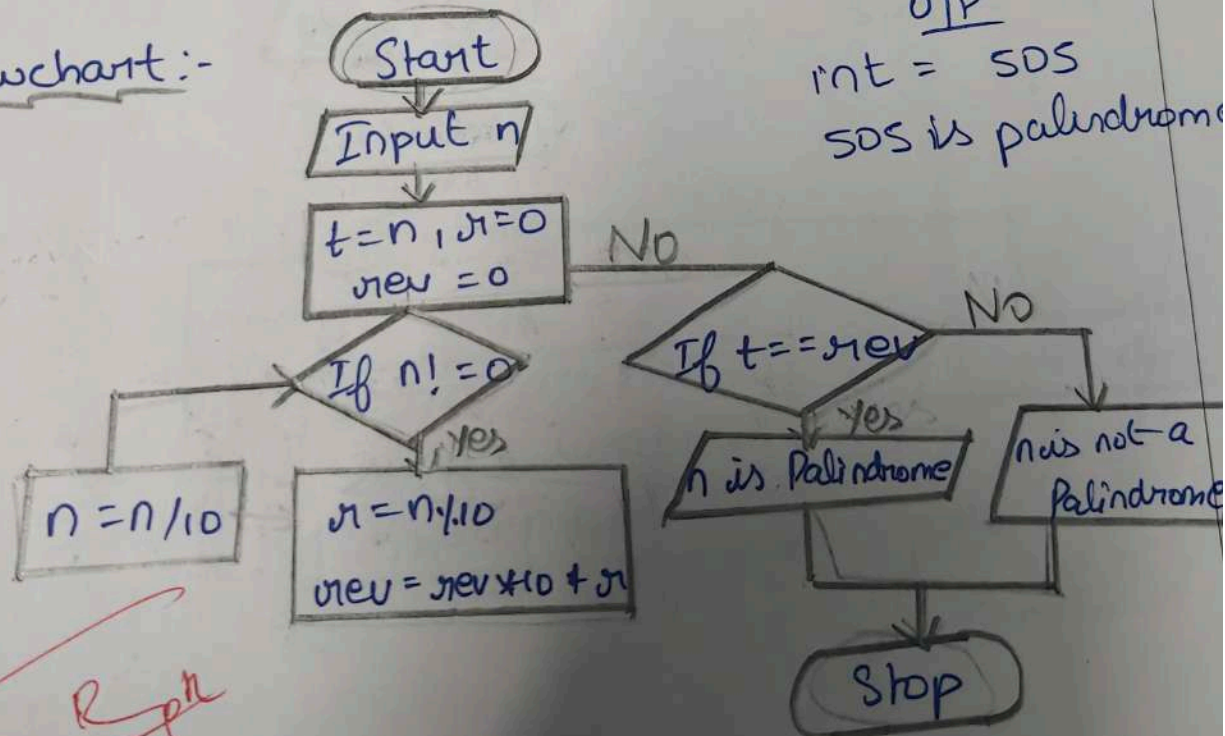 wchart:-
Start
O/P
int = 505
505 is palindrome
Input n
t=n, r=0
rev = 0
NO
If n! = 0
If t==rev
NO
yes
yes
n = n/10
r = n%10
rev = rev*10 + r
n is Palindrome
n is not a
Palindrome
Stop